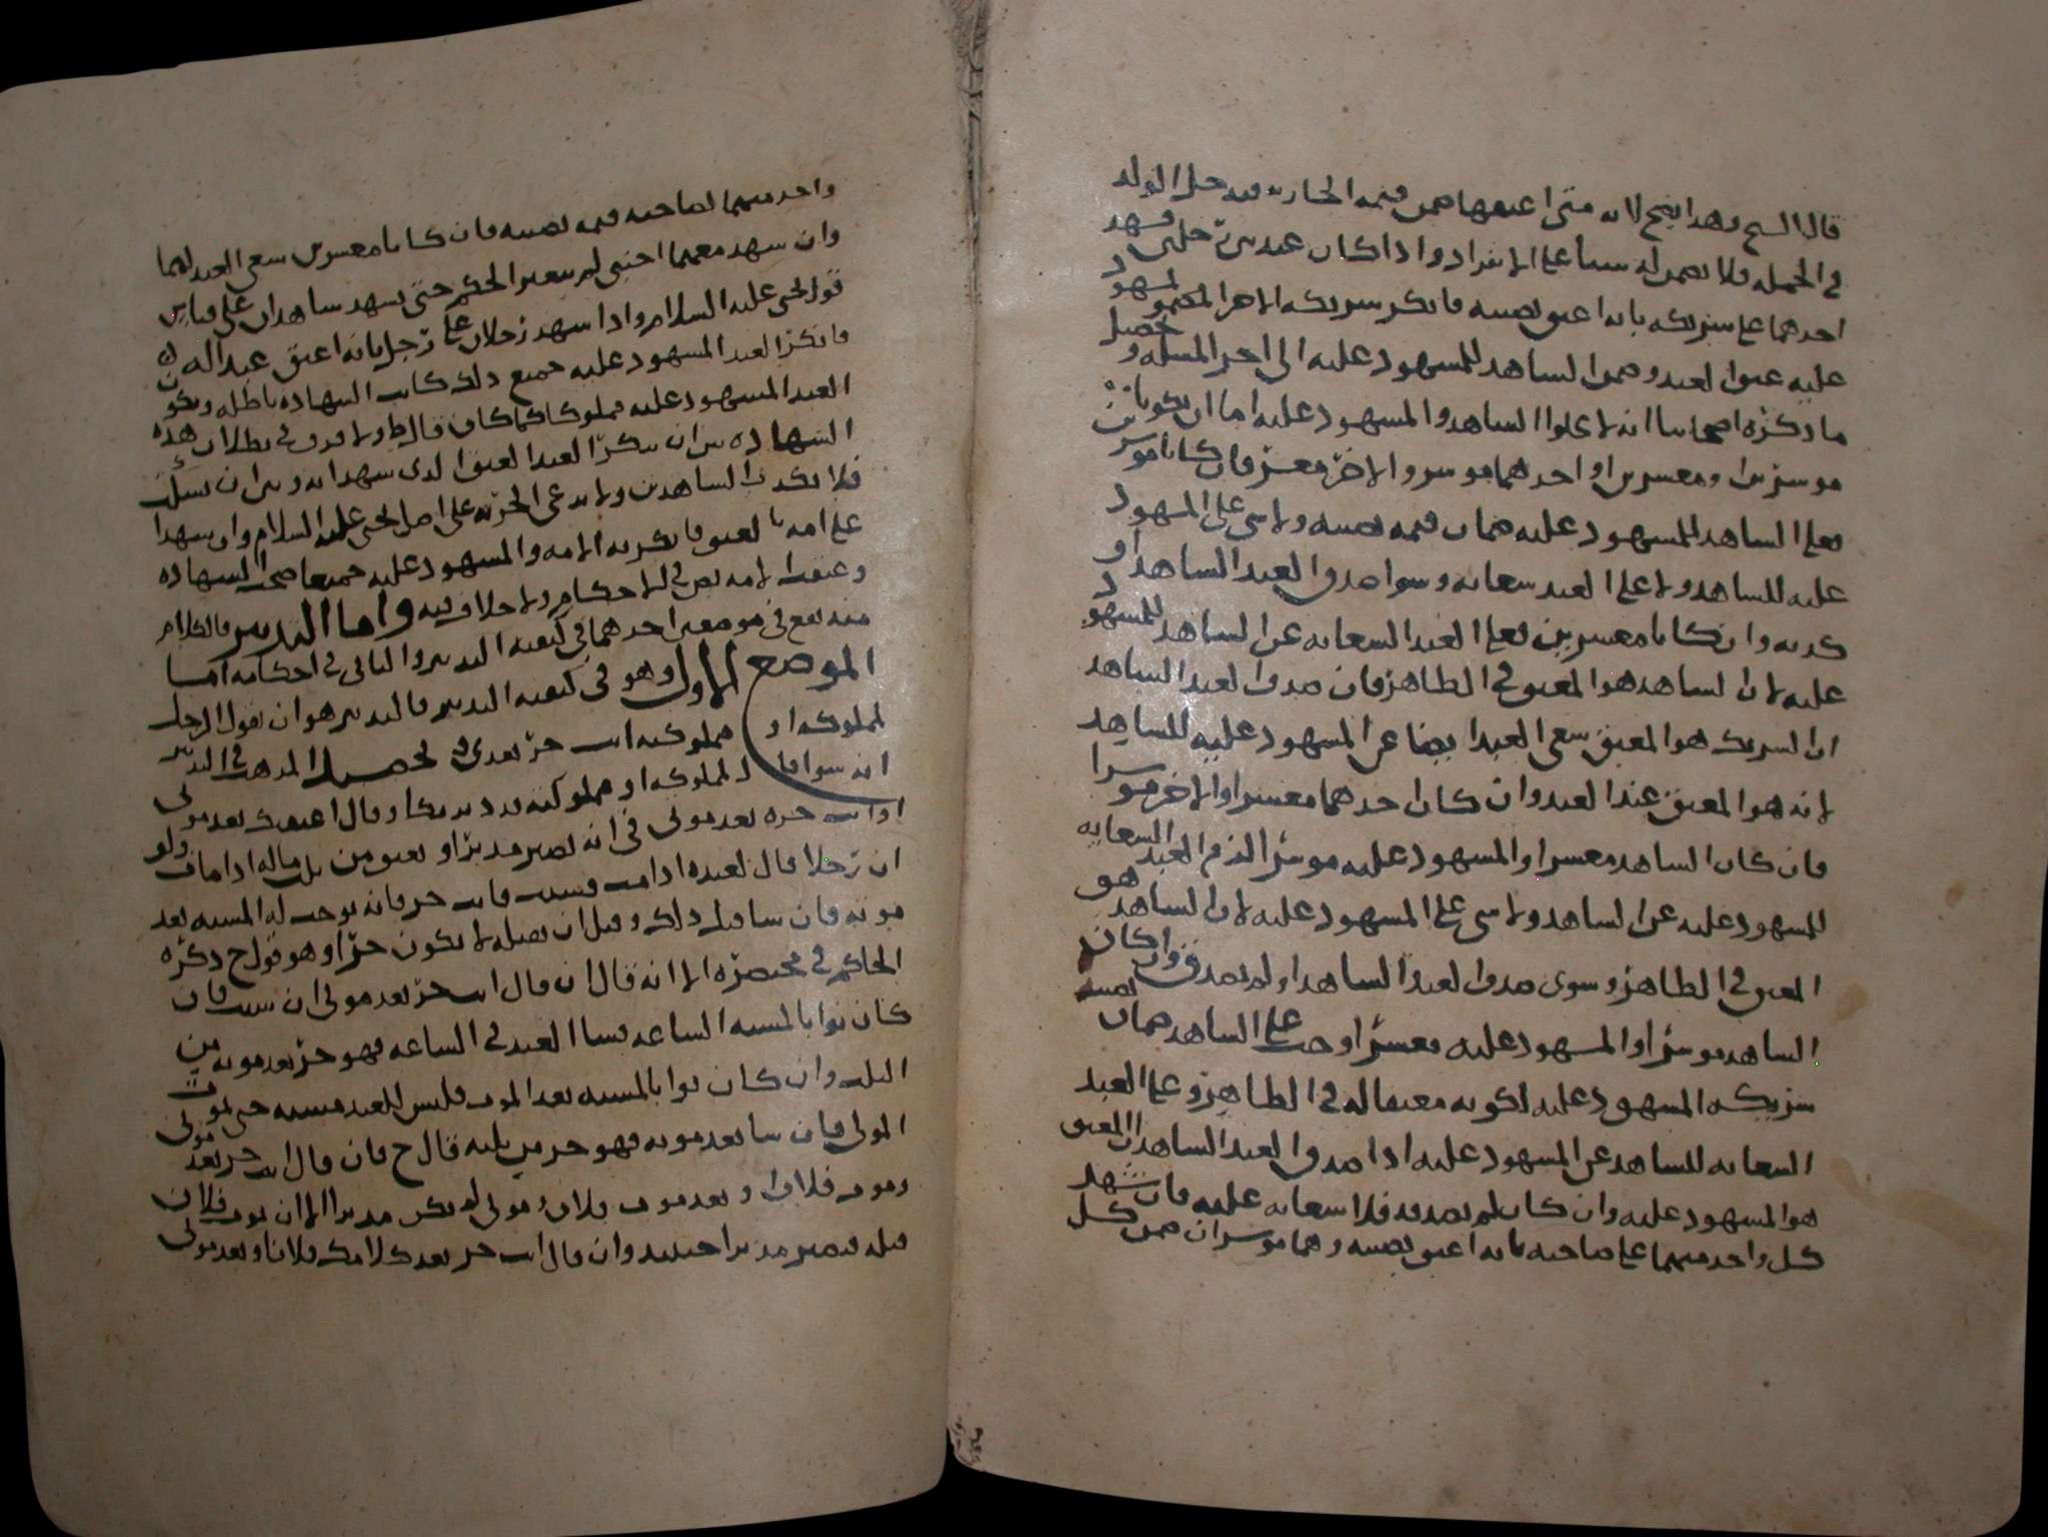 قال الشيخ وهذا يصح لانه متى اعتقها ضمن قيمة الجارية فيدخل الولد
في الجمله فلا يضمن له شيئا على الانفراد واذا كان عبد بين رجلين فشهد
احدهما على شريكه بانه اعتق نصيبه فانكر شريكه الاخر المشهود
عليه عتق العبد وضمن الشاهد للمشهود عليه الى اخر المسله وتحصيل
ما ذكره اصحابنا انه لا يخلوا الشاهد والمشهود عليه اما ان يكونا
موسرين او معسرين او احدهما موسر والاخر معسر فان كانا موسرين
فعلى الشاهد للمشهود عليه ضمان قيمه نصيبه ولا شي على المشهود
عليه للشاهد ولا على العبد سعايه وسوا صدق العبد الشاهد او
كذبه وان كانا معسرين فعلى العبد السعايه عن الشاهد للمشهود
عليه لان الشاهد هو المعتق في الظاهر فان صدق العبد الشاهد
ان الشريك هو المعتق سعى العبد ايضا عن المشهود عليه للشاهد
لانه هو المعتق عند العبد وان كان احدهما معسرا والاخر موسرا
فان كان الشاهد معسرا والمشهود عليه موسرا لزم العبد السعايه
للمشهود عليه عن الشاهد ولا شي على المشهود عليه لان الشاهد هو
المعتق في الظاهر وسوى صدق العبد الشاهد او لم يصدق وان كان
الشاهد موسرا والمشهود عليه معسرا وجب على الشاهد ضمان نصيب
شريكه المشهود عليه لكونه معتقا له في الظاهر وعلى العبد
السعايه للشاهد عن المشهود عليه اذا صدق العبد الشاهد ان المعتق
هو المشهود عليه وان كان لم يصدقه فلا سعايه عليه فان شهد
كل واحد منهما على صاحبه بانه اعتق نصيبه وهما موسران ضمن كل
واحد منهما لصاحبه قيمه نصيبه فان كانا معسرين سعى العبد لهما
وان شهد معهما اجنبي لم يتغير الحكم حتى يشهد شاهدان على قياس
قول يحيى عليه السلام واذا شهد رجلان على رجل بانه اعتق عبدا له
فانكر العبد المشهود عليه جميع ذلك كانت الشهاده باطله ويكون
العبد المشهود عليه مملوكا كما كان قال ط ولا فرق في بطلان هذه
الشهاده بين ان ينكر العبد العتق الذي شهدا به وبين ان يسكت
فلا يكذب الشاهدين ولا يدعي الحريه على اصل يحيى عليه السلام وان شهدا
على امه بالعتق فانكرته الامه والمشهود عليه جميعا صحت الشهاده
وعتقت الامه نص في الاحكام ولا خلاف فيه واما التدبير فالكلام
منه يقع في موضعين احدهما في كيفيه التدبير والثاني في احكامه اما
الموضع الاول وهو في كيفيه التدبير فالتدبير هو ان يقول الرجل
لمملوكه او مملوكته انت حر بعدي وتحصيل المذهب في التدبير
انه سوا قال لمملوكه او مملوكته قد دبرتكا او قال اعتقتك بعد موتي
او انت حره بعد موتي في انه يصير مدبرا ويعتق من ثلث ماله اذا مات ولو
ان رجلا قال لعبده اذا مت فشئت فانت حر فانه يوجب له المشيه بعد
موته فان شا قبل ذلك وقبل ان يصله لا يكون حرا وهو قول ح ذكره
الحاكم في مختصره الا انه قال ان قال انت حر بعد موتي ان شئت فان
كان نوا بالمشيه الساعه فشا العبد في الساعه فهو حر بعد موته من
الثلث وان كان نوا بالمشيه بعد الموت فليس للعبد مشيه حتى يموت
المولى فان شا بعد موته فهو حر من ثلثه قال ح فان قال انت حر بعد موتي
وموت فلان او بعد موت فلان وموتي لم يكن مدبرا الا ان يموت فلان
قبله فيصير مدبرا حينئذ وان قال انت حر بعد كلامك فلانا وبعد موتي